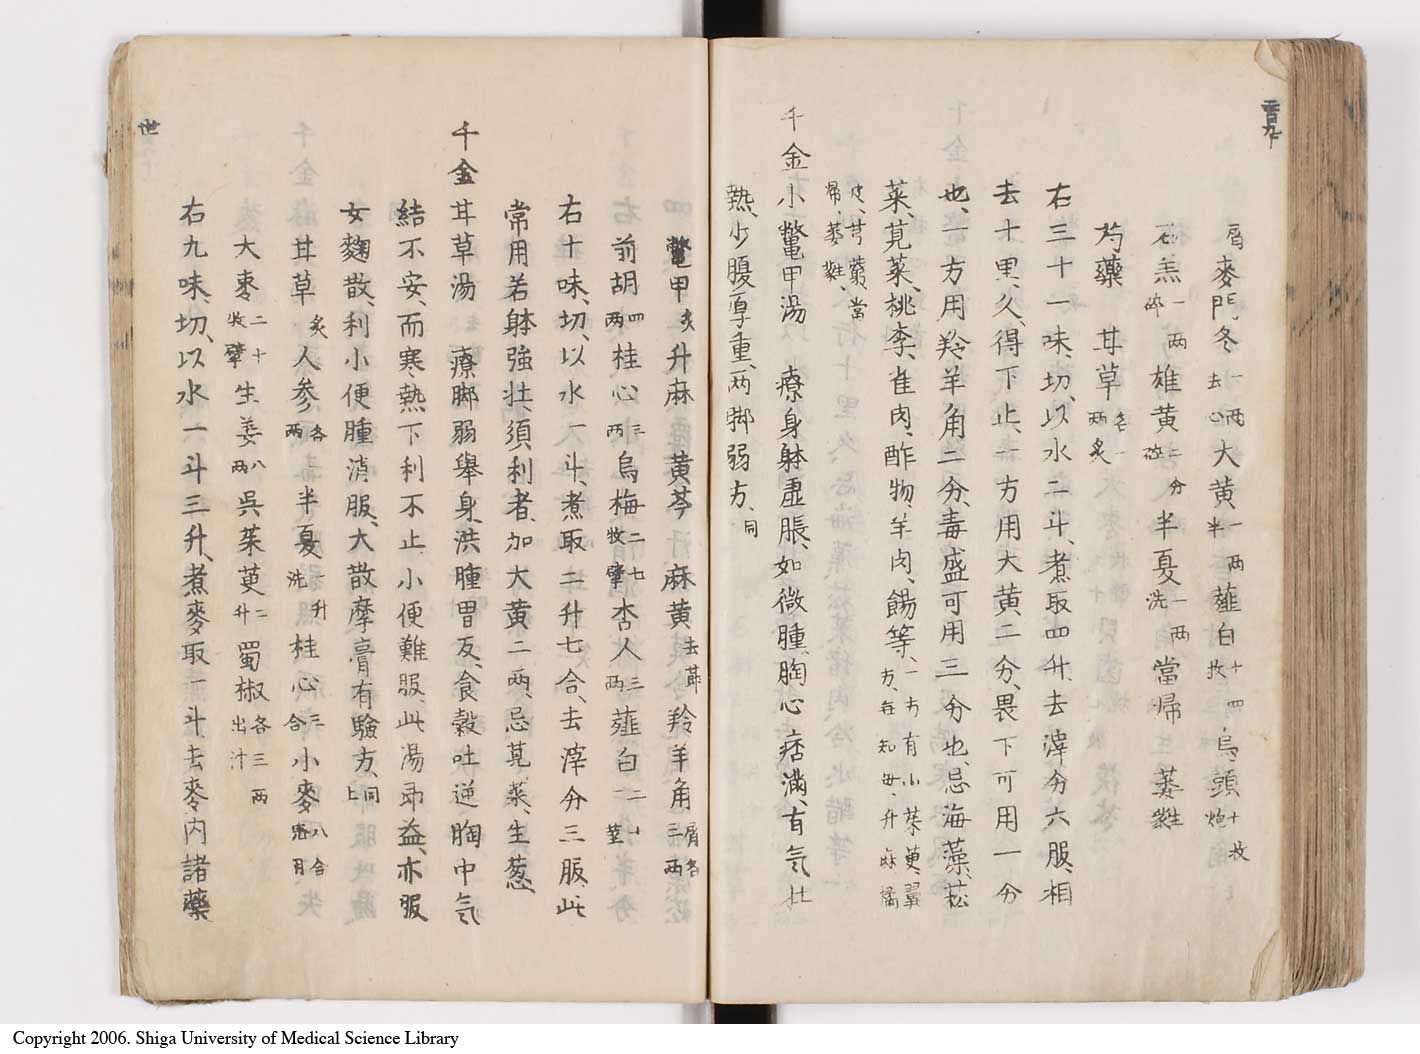 屑麥門冬一两去心大黄一两半薤白十四枚烏頭十枚炮
石羔一两碎雄黄二分碎半夏一两洗當帰 萎蕤
芍藥 甘草各一两炙
右三十一味、切、以水二斗、煮取四升、去滓分六服、相
去十里、久、得下止、一方用大黄二分、畏下可用一分
也、一方用羚羊角二分、毒盛可用三分也、忌海藻、菘
菜、莧菜、桃李、雀肉、酢物羊肉、餳等、一方有小茱萸、翼方、在知母、升麻橘
皮、芎藭、當帰、萎蕤、
千金小鱉甲湯 療身躰虚脹、如微腫、胸心痞満、有気壮
熱、少腹厚重、两脚弱方、同
鱉甲炙升麻 黄芩 麻黄去節羚羊角屑各三两
前胡四两桂心三两烏梅二七枚擘杏人三两薤白二十莖
右十味、切、以水一斗、煮取二升七合、去滓分三服、此
常用若躰強壮、須利者、加大黄二两、忌莧菜、生葱、
千金甘草湯 療脚弱舉身洪腫胃反、食穀吐逆胸中気
結不安、而寒熱下利不止、小便難服、此湯即益、亦服
女麴散、利小便腫消服、大散摩膏有驗方、同上
甘草炙人参各两半夏一升洗桂心三合小麥八合
大棗二十枚擘生姜八两吳茱萸二升蜀椒各三两出汁
右九味、切、以水一斗三升、煮麥取一斗去麥、内諸藥